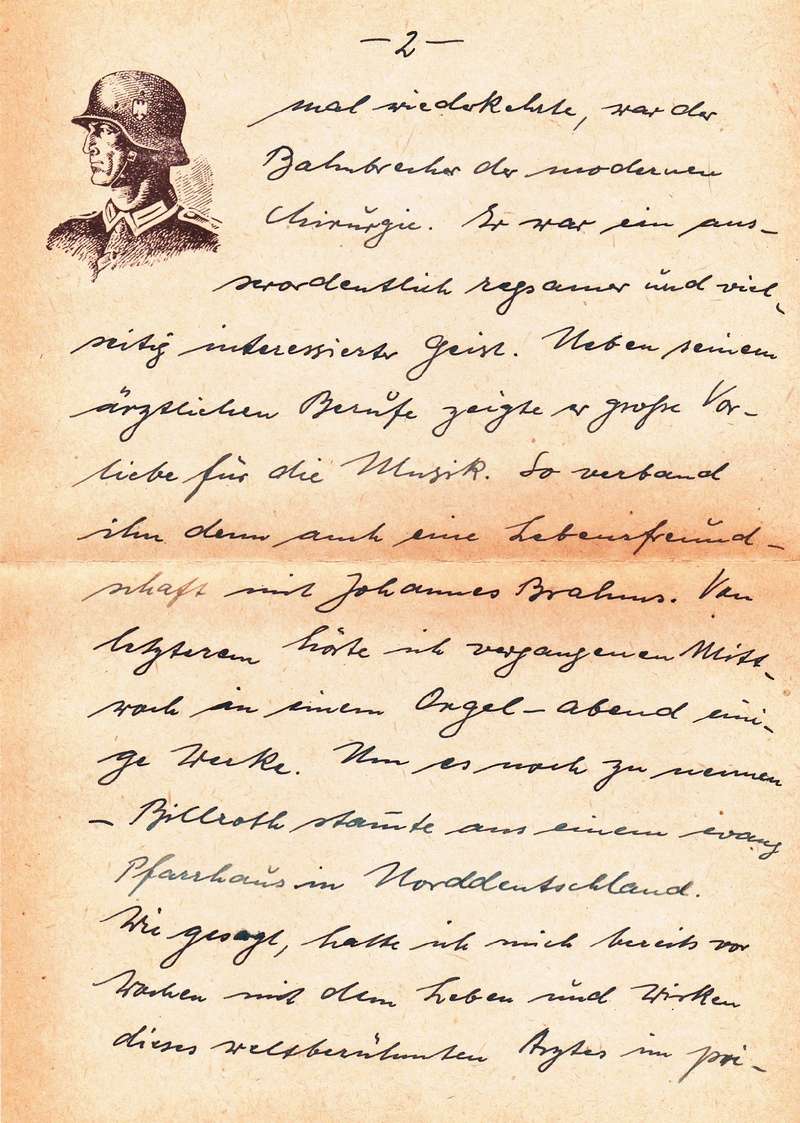 — 2 —
mal wiederkehrte, war der
Bahnbrecher der modernen
Chirurgie. Er war ein aus-
serordentlich regsamer und viel-
seitig interessierter Geist. Neben seinem
ärztlichen Berufe zeigte er große Vor-
liebe für die Musik. So verband
ihn denn auch eine Lebensfreund-
schaft mit Johannes Brahms. Von
letzterem hörte ich vergangenen Mitt-
woch in einem Orgel-abend eini-
ge Werke. Um es noch zu nennen
– Billroth stam̄te aus einem evang
Pfarrhaus in Norddeutschland.
Wie gesagt, hatte ich mich bereits vor
Wochen mit dem Leben und Wirken
dieses weltberühmten Arztes im pri-